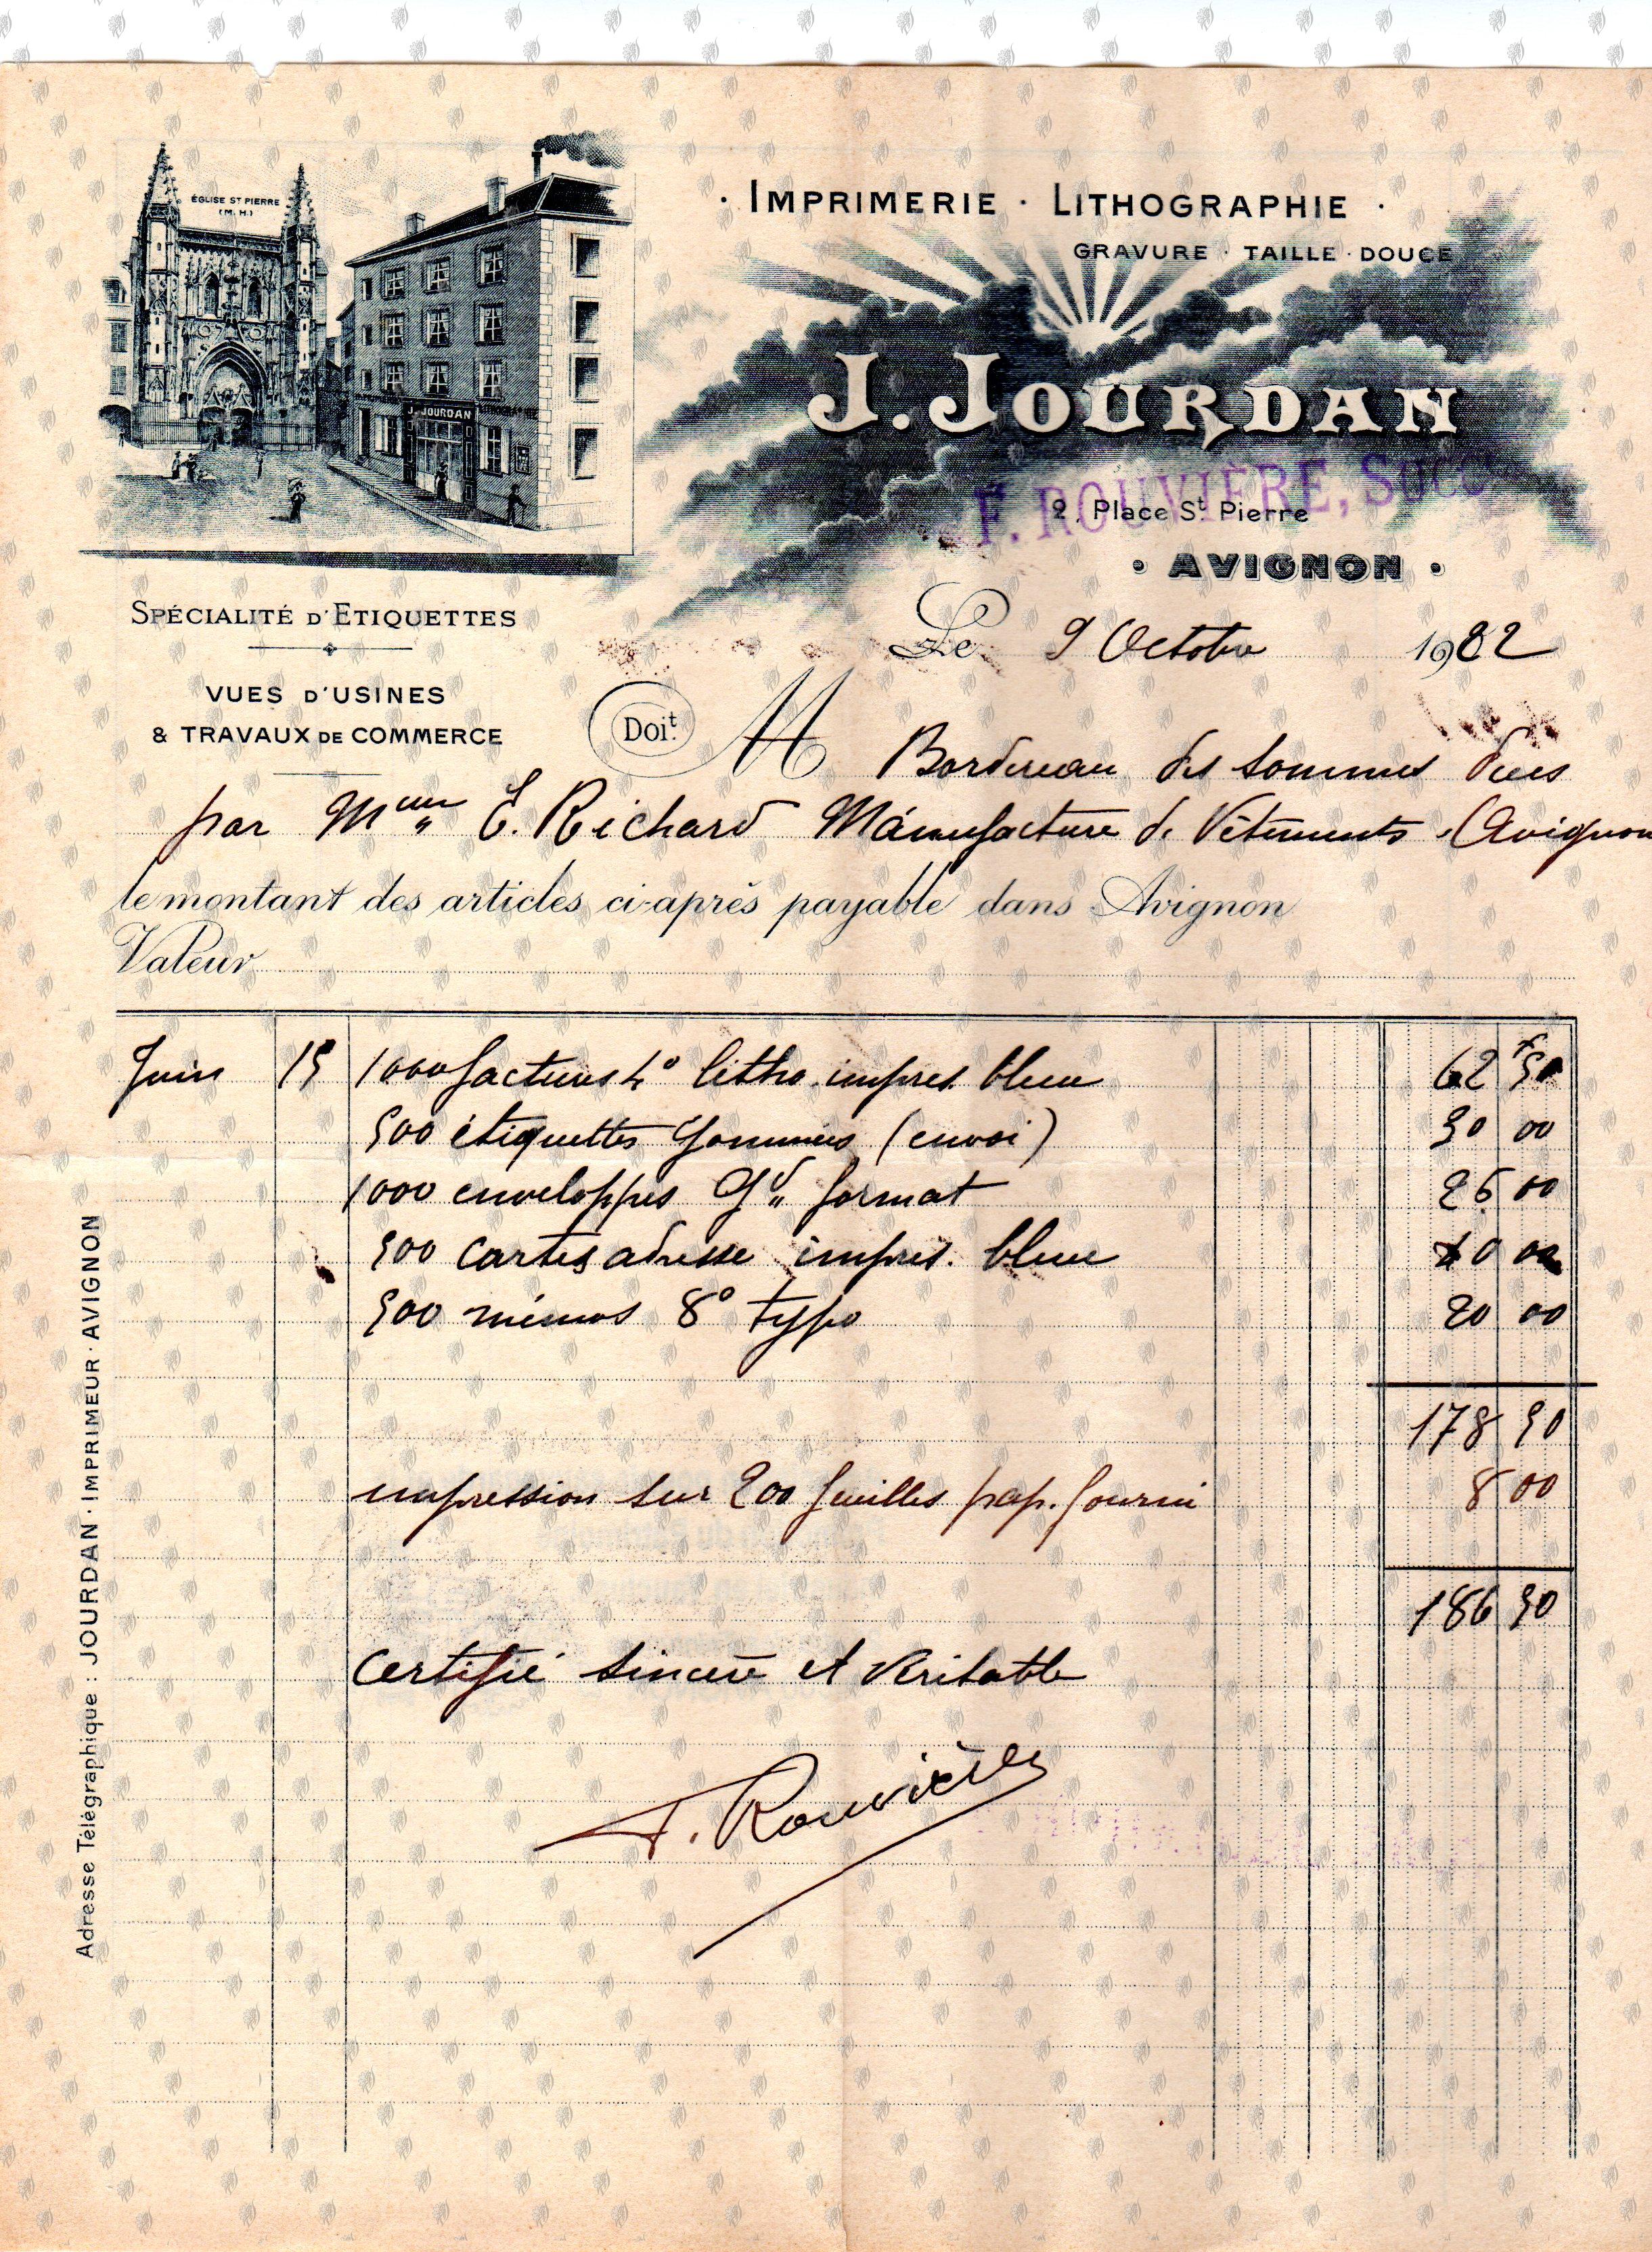 ÉGLISE ST PIERRE
(M.H.)
J. JOURDAN
· IMPRIMERIE · LITHOGRAPHIE ·
GRAVURE · TAILLE · DOUCE
J. JOURDAN
F. ROUVIÈRE, SUCC
2, Place St Pierre
• AVIGNON •
SPÉCIALITÉ D'ETIQUETTES
VUES D'USINES
& TRAVAUX DE COMMERCE
Le 9 Octobre 1922
Doit M Bordereau des sommes dues
par E. Richard Manufacture de Vêtements Avignon
le montant des articles ci-après payable dans Avignon
Valeur
Juin 15 1000 factures 4° litho impres. bleue 62 f 50
500 étiquettes gommées (envoi) 30 00
1000 enveloppes Gd format 26 00
500 cartes adresse impres. bleue 40 00
500 mémos 8° typo 20 00
178 50
impression sur 200 feuilles pap. fourni 8 00
186 50
Certifié sincère et véritable
F. Rouvière
Adresse Télégraphique : JOURDAN · IMPRIMEUR · AVIGNON